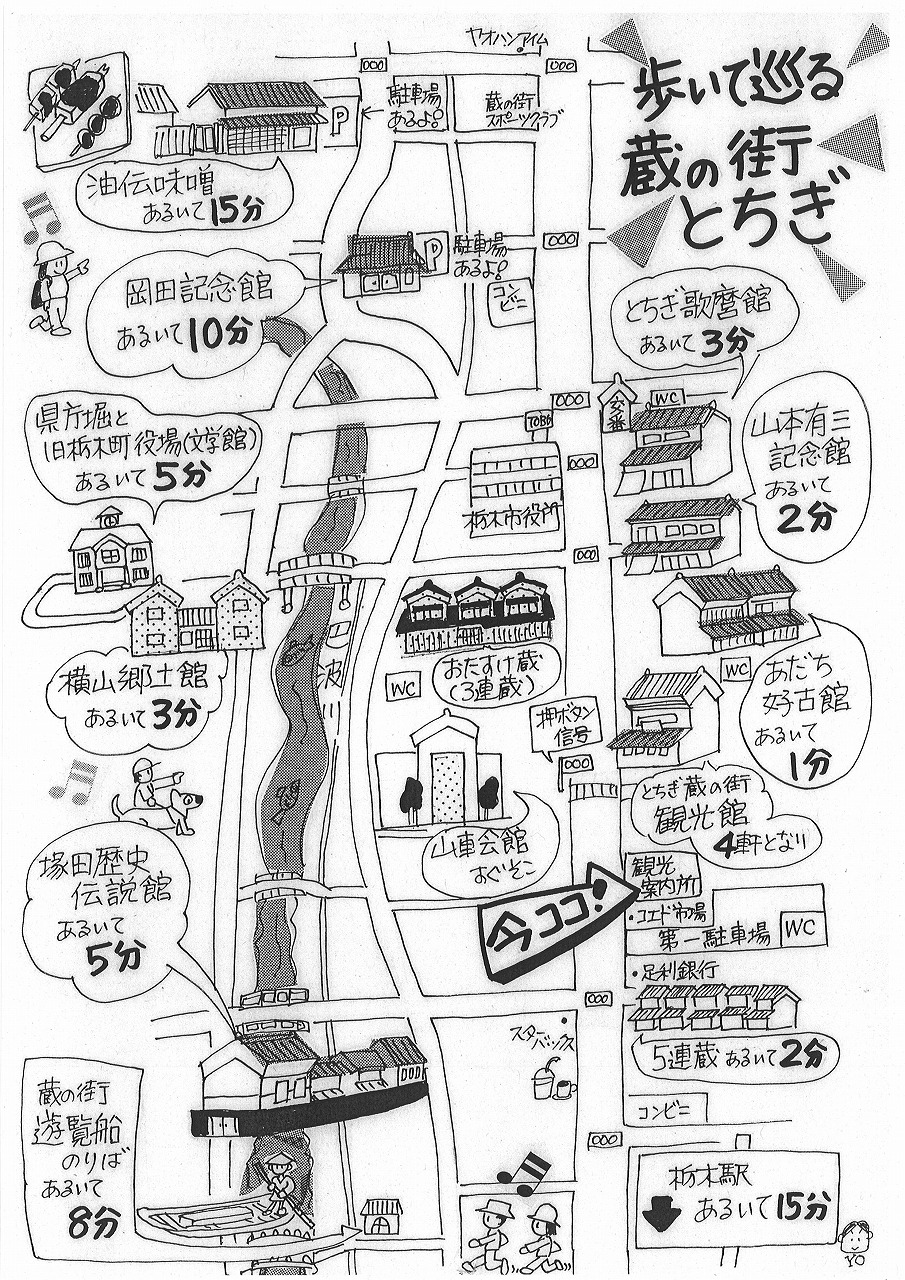 歩いて巡る
蔵の街
とちぎ
ヤオハンアイム
駐車場
あるよ!
P
蔵の街
スポーツクラブ
油伝味噌
あるいて15分
P
駐車場
あるよ!
コンビニ
岡田記念館
あるいて10分
とちぎ歌麿館
あるいて3分
交番
WC
県庁堀と
旧栃木町役場(文学館)
あるいて5分
TOBU
栃木市役所
山本有三
記念館
あるいて
2分
横山郷土館
あるいて3分
おたすけ蔵
(3連蔵)
WC
WC
あだち
好古館
あるいて
1分
押ボタン
信号
とちぎ蔵の街
観光館
4軒となり
山車会館
すぐそこ
塚田歴史
伝説館
あるいて
5分
今ココ!
観光
案内所
・コエド市場
第一駐車場
WC
・足利銀行
5連蔵あるいて2分
スターバックス
コンビニ
蔵の街
遊覧船
のりば
あるいて
8分
栃木駅
あるいて15分
YO